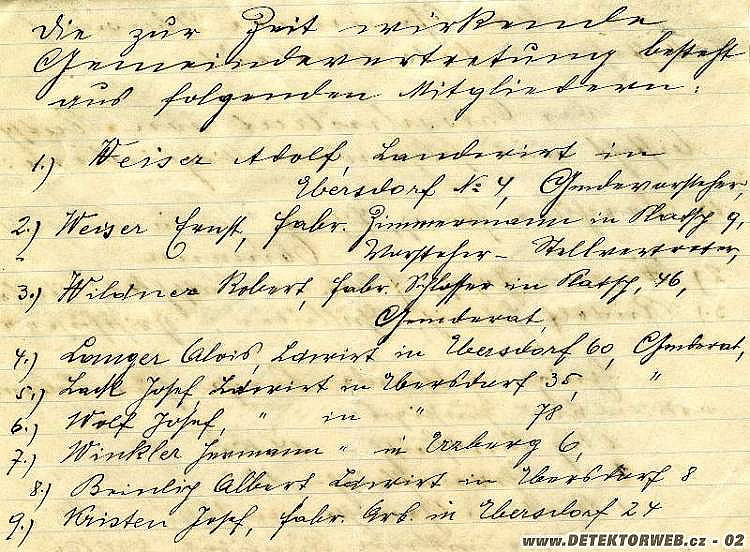 Die zur Zeit wirkende
Gemeindevertretung besteht
aus folgenden Mitgliedern:
1.) Weiser Adolf, Landwirt in
Ebersdorf No 4, Gmdevorsteher,
2.) Weiser Ernst, fabr. Zimmermann in Ratsch 9,
Vorsteher-Stellvertreter,
3.) Wildner Robert, fabr. Schlosser in Ratsch, 46,
Gmderat,
4.) Langer Alois, Ldwirt in Ebersdorf 60, Gmderat,
5.) Lack Josef, Ldwirt in Ebersdorf 35, "
6.) Wolf Josef, " in " 78
7.) Winkler Hermann " in Erzberg 6,
8.) Beinlich Albert Ldwirt in Ebersdorf 8
9.) Kristen Josef, fabr. Arb. in Ebersdorf 24
www.DETEKTORWEB.cz - 02